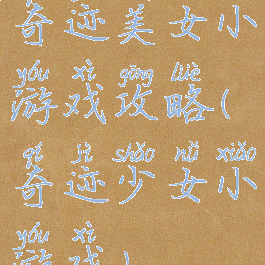 奇迹美女小
yóu xì gōng lüè
游戏攻略(
qí jì shǎo nǚ xiǎo
奇迹少女小
yóu xì
游戏)